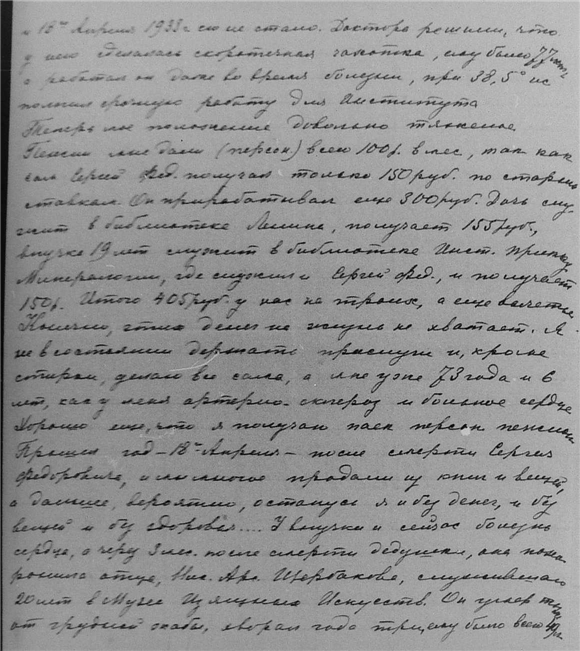 и 18го Апреля 1933г его не стало. Доктора решили, что
у него сделалась скоротечная чахотка, ему было 77 лет
а работал он даже во время болезни, при 38,5° ис
полнил срочную работу для Института
Теперь мое положение довольно тяжелое.
Пенсии мне дали (персон) всего 100р. в мес, так как
сам Сергей Фед. получал только 150 руб. по старым
ставкам. Он прирабатывал еще 300 руб. Дочь слу
жит в библиотеке Ленина, получает 155 руб.,
внучка 19 лет служит в библиотеке Инст. Приклад
Минералогии, где служил и Сергей Фед., и получает
150р. Итого 405 руб. у нас на троих, а еще вычеты
Конечно, этих денег на жизнь не хватает. Я
не в состоянии держать прислуги и, кроме
стирки, делаю все сама, а мне уже 73 года и 6
лет, как у меня артерио-склероз и больное сердце
Хорошо еще, что я получаю паек персон пенсион
Прошел год – 18го Апреля – после смерти Сергея
Федоровича, и мы многое продали из книг и вещей,
а дальше, вероятно, останусь я и без денег, и без
вещей и без здоровья.... У внучки и сейчас болезнь
сердца, а через 3 мес. после смерти дедушки, она похо
ронила отца, Ник. Арс. Щербакова, служившего
20 лет в Музее Изящных Искусств. Он умер тоже
от грудной жабы, хворал года три, ему было всего